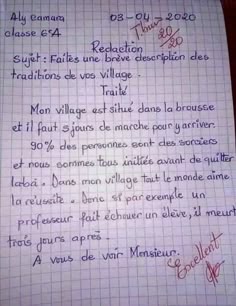 Aly Camara 03-04-2020
classe 6è A T.bien 20/20
Redaction
Sujet : Faites une brève description des
traditions de vos village.
Traité
Mon village est situé dans la brousse
et il faut 5 jours de marche pour y arriver.
90% des personnes sont des sorciers
et nous sommes tous initiés avant de quitter
labà. Dans mon village tout le monde aime
la réussite. Donc si par exemple un
professeur fait échouer un élève, il meurt
trois jours après.
A vous de voir Monsieur.
Excellent